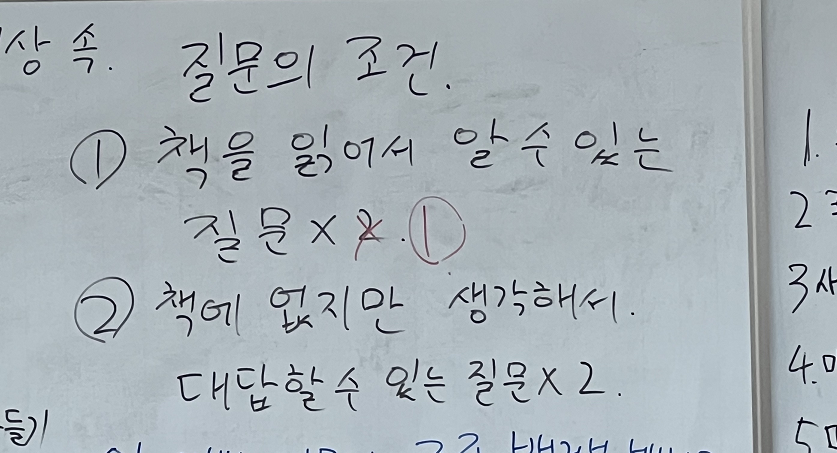 상 속. 질문의 조건.
① 책을 읽어서 알 수 있는
질문 × 2. ①
② 책에 없지만 생각해서.
대답할 수 있는 질문 × 2.
들기
1.
2
3 사
4.
5